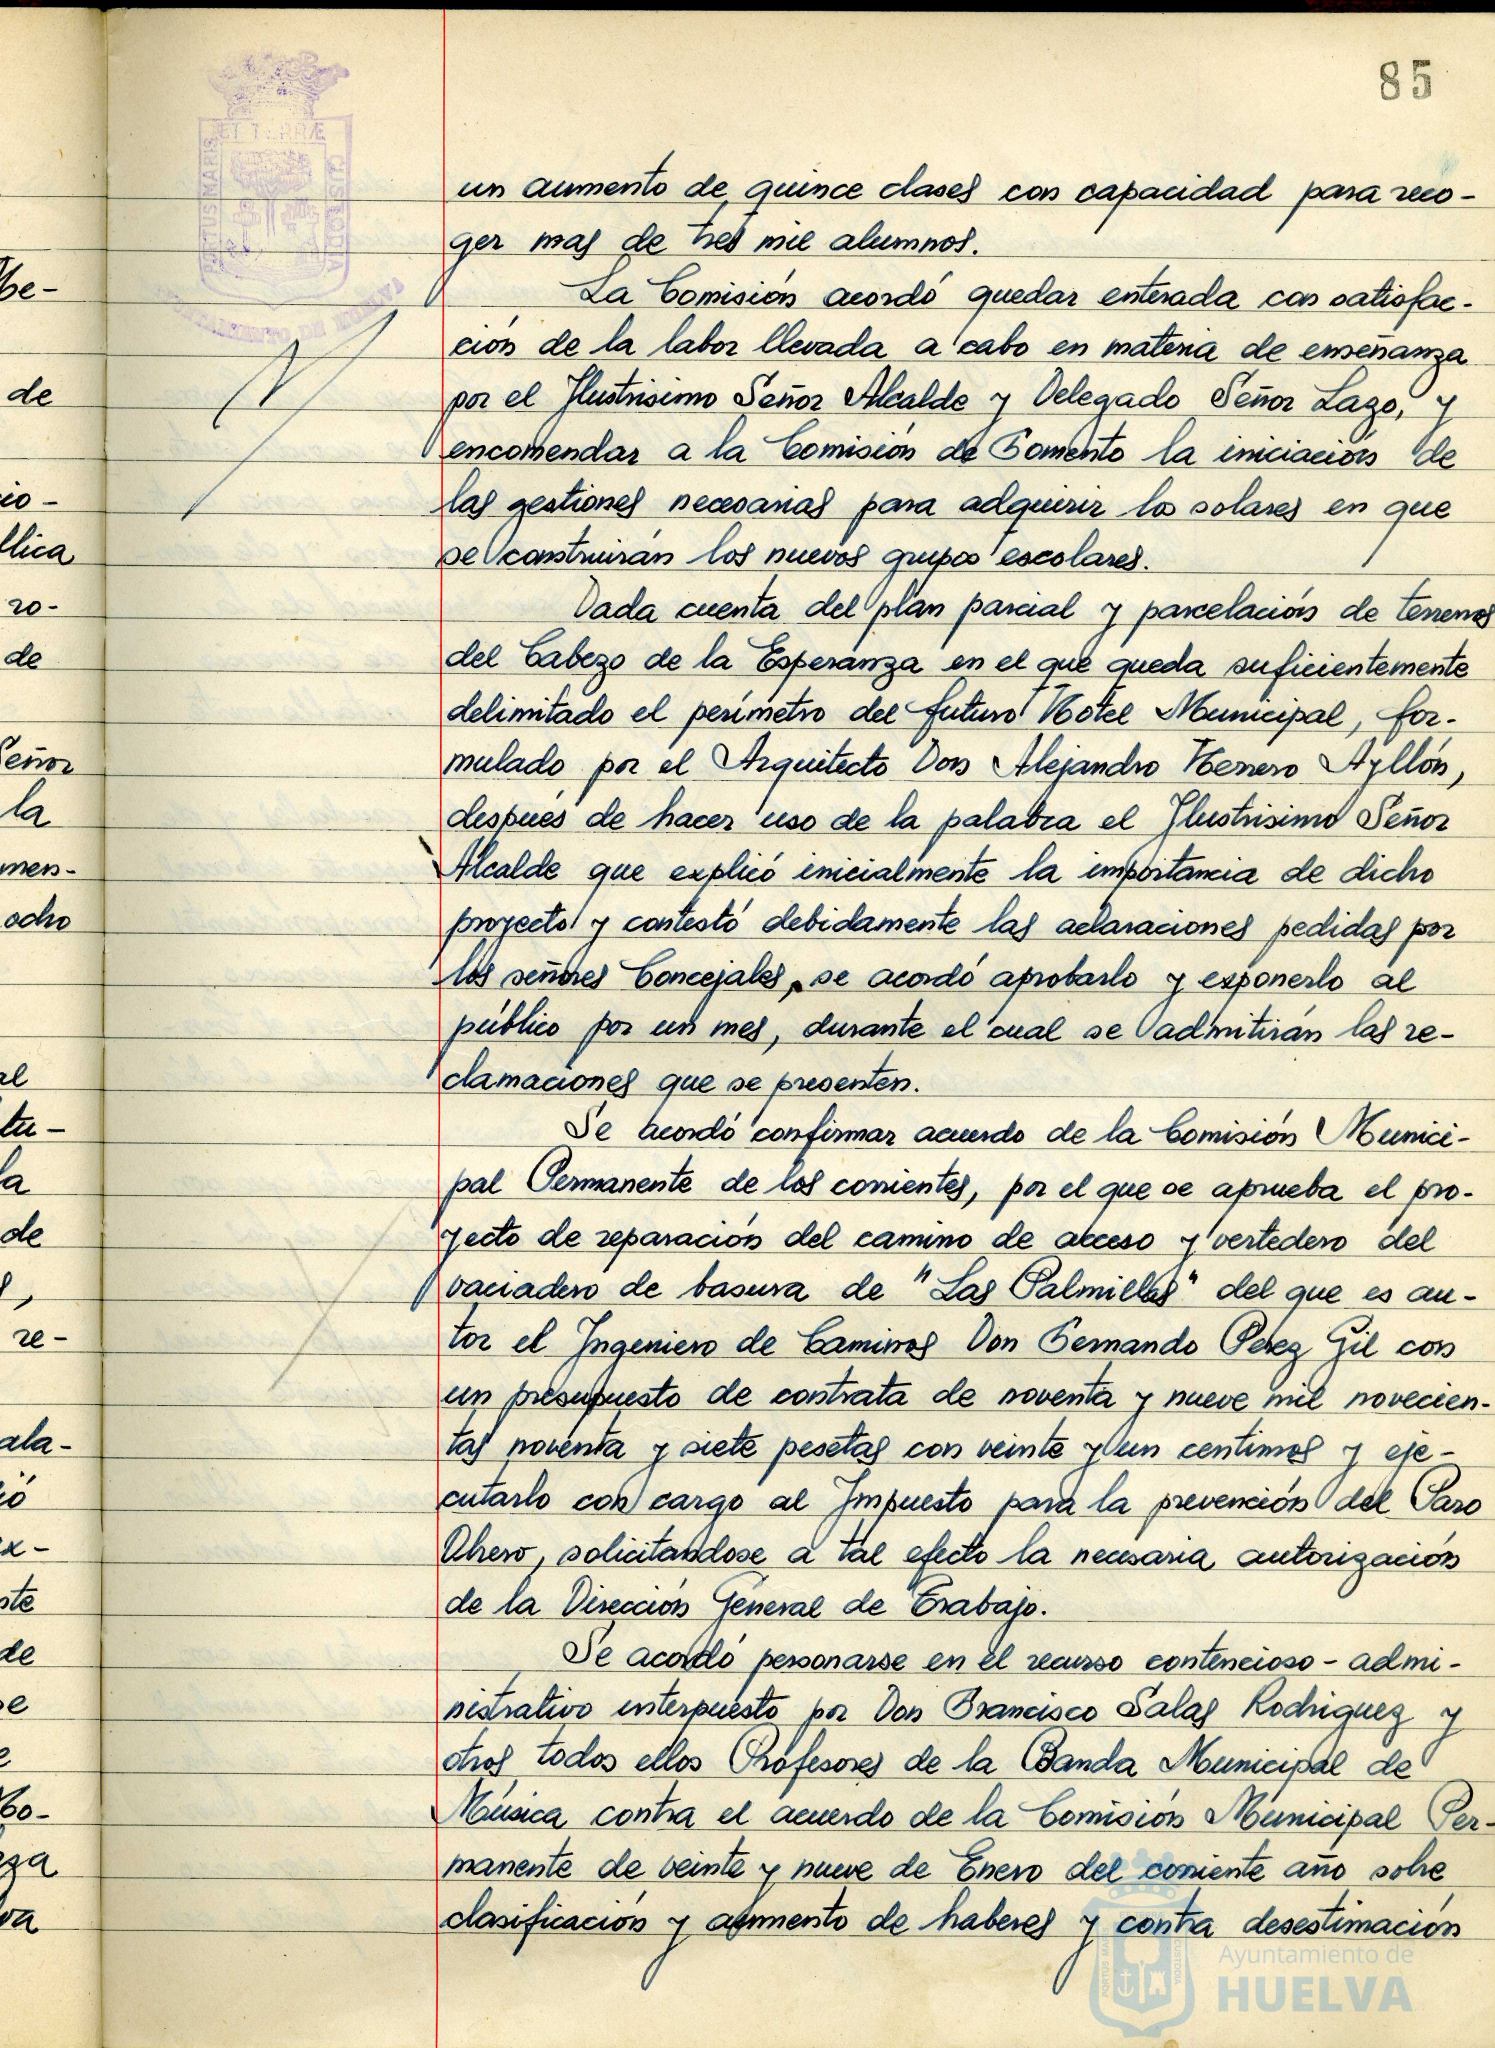 85
PORTUS MARIS
ET TERRÆ
CUSTODIA
AYUNTAMIENTO DE HUELVA
un aumento de quince clases con capacidad para reco-
ger mas de tres mil alumnos.
La Comisión acordó quedar enterada con satisfac-
ción de la labor llevada a cabo en materia de enseñanza
por el Ilustrisimo Señor Alcalde y Delegado Señor Lazo, y
encomendar a la Comisión de Fomento la iniciación de
las gestiones necesarias para adquirir los solares en que
se construirán los nuevos grupos escolares.
Dada cuenta del plan parcial y parcelación de terrenos
del Cabezo de la Esperanza en el que queda suficientemente
delimitado el perímetro del futuro Hotel Municipal, for-
mulado por el Arquitecto Don Alejandro Herrero Ayllón,
después de hacer uso de la palabra el Ilustrisimo Señor
Alcalde que explicó inicialmente la importancia de dicho
proyecto y contestó debidamente las aclaraciones pedidas por
los señores Concejales, se acordó aprobarlo y exponerlo al
público por un mes, durante el cual se admitirán las re-
clamaciones que se presenten.
Se acordó confirmar acuerdo de la Comisión Munici-
pal Permanente de los corrientes, por el que se aprueba el pro-
yecto de reparación del camino de acceso y vertedero del
vaciadero de basura de "Las Palmillas" del que es au-
tor el Ingeniero de Caminos Don Fernando Perez Gil con
un presupuesto de contrata de noventa y nueve mil novecien-
tas noventa y siete pesetas con veinte y un centimos y eje-
cutarlo con cargo al Impuesto para la prevención del Paro
Obrero, solicitandose a tal efecto la necesaria autorización
de la Dirección General de Trabajo.
Se acordó personarse en el recurso contencioso-admi-
nistrativo interpuesto por Don Francisco Salas Rodriguez y
otros todos ellos Profesores de la Banda Municipal de
Música contra el acuerdo de la Comisión Municipal Per-
manente de veinte y nueve de Enero del corriente año sobre
clasificación y aumento de haberes y contra desestimación
Ayuntamiento de
HUELVA